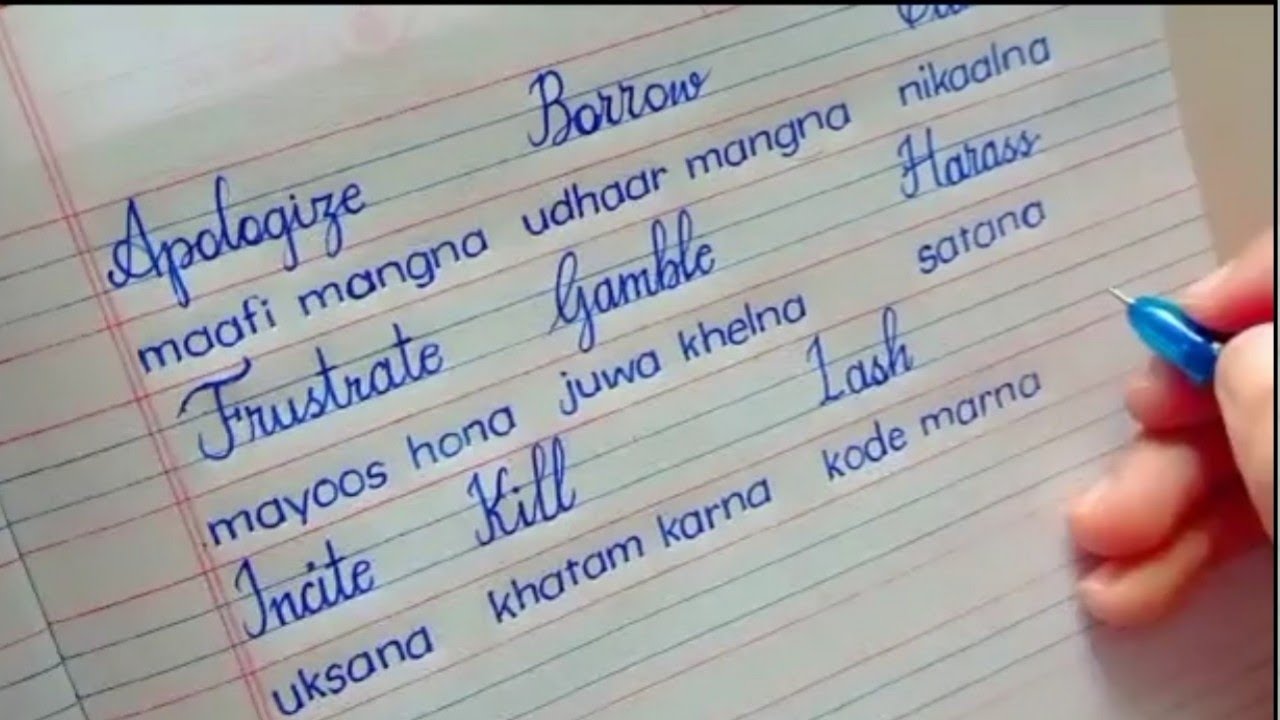 Apologize Borrow
maafi mangna udhaar mangna nikaalna
Frustrate Gamble Harass
mayoos hona juwa khelna satana
Incite Kill Lash
uksana khatam karna kode marna